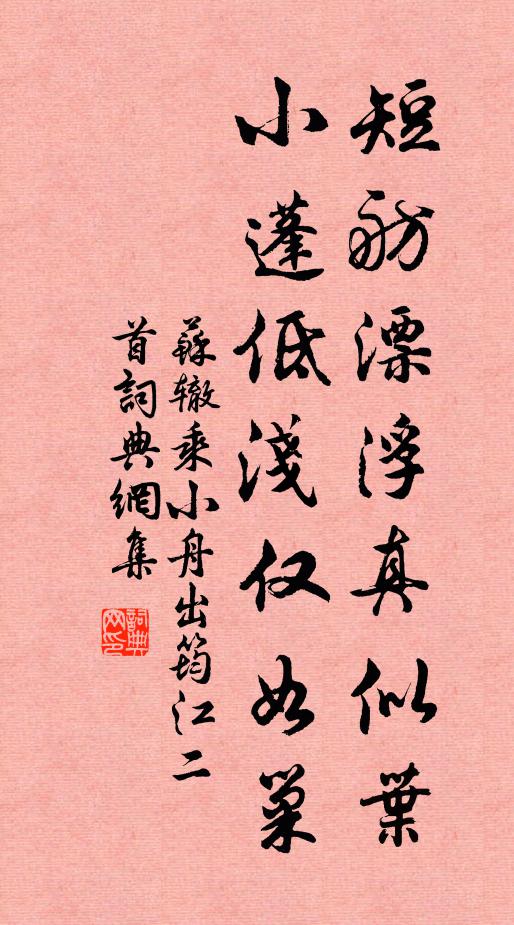 短舫漂浮真似葉
小蓬低淺仅如巢
蘇辙乘小舟出筠江二
首詞典網集
詞典網印